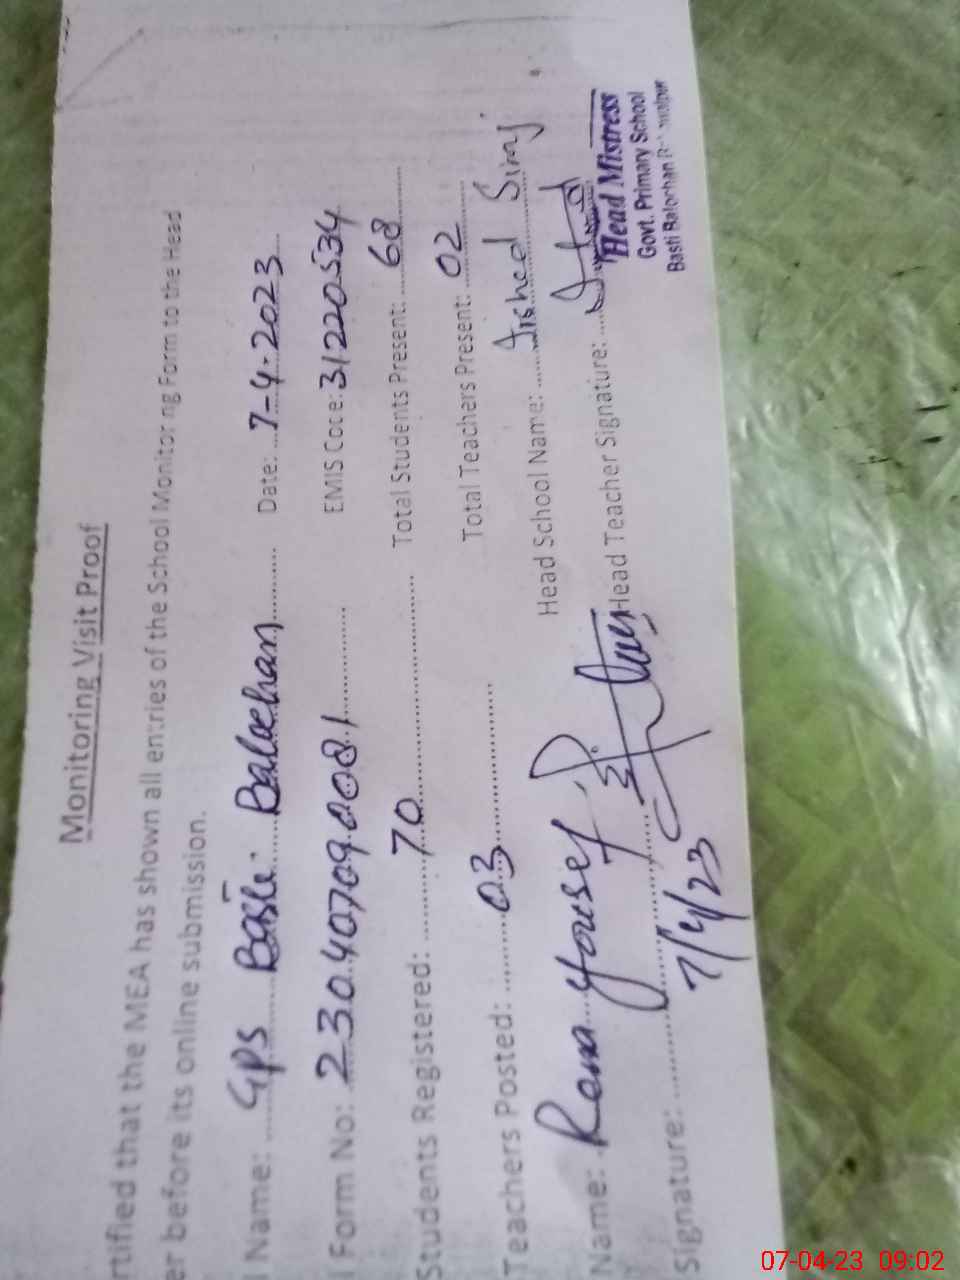 Monitoring Visit Proof
rtified that the MEA has shown all entries of the School Monitoring Form to the Head
er before its online submission.
Name: GPS Basti Balochan Date: 7-4-2023
Form No: 230407090081 EMIS Code: 31220534
Students Registered: 70 Total Students Present: 68
Teachers Posted: 03 Total Teachers Present: 02
Name: Rana Yousef Head School Name:
Signature: Head Teacher Signature:
7/4/23
Head Mistress
Govt. Primary School
Basti Balochan
07-04-23 09:02